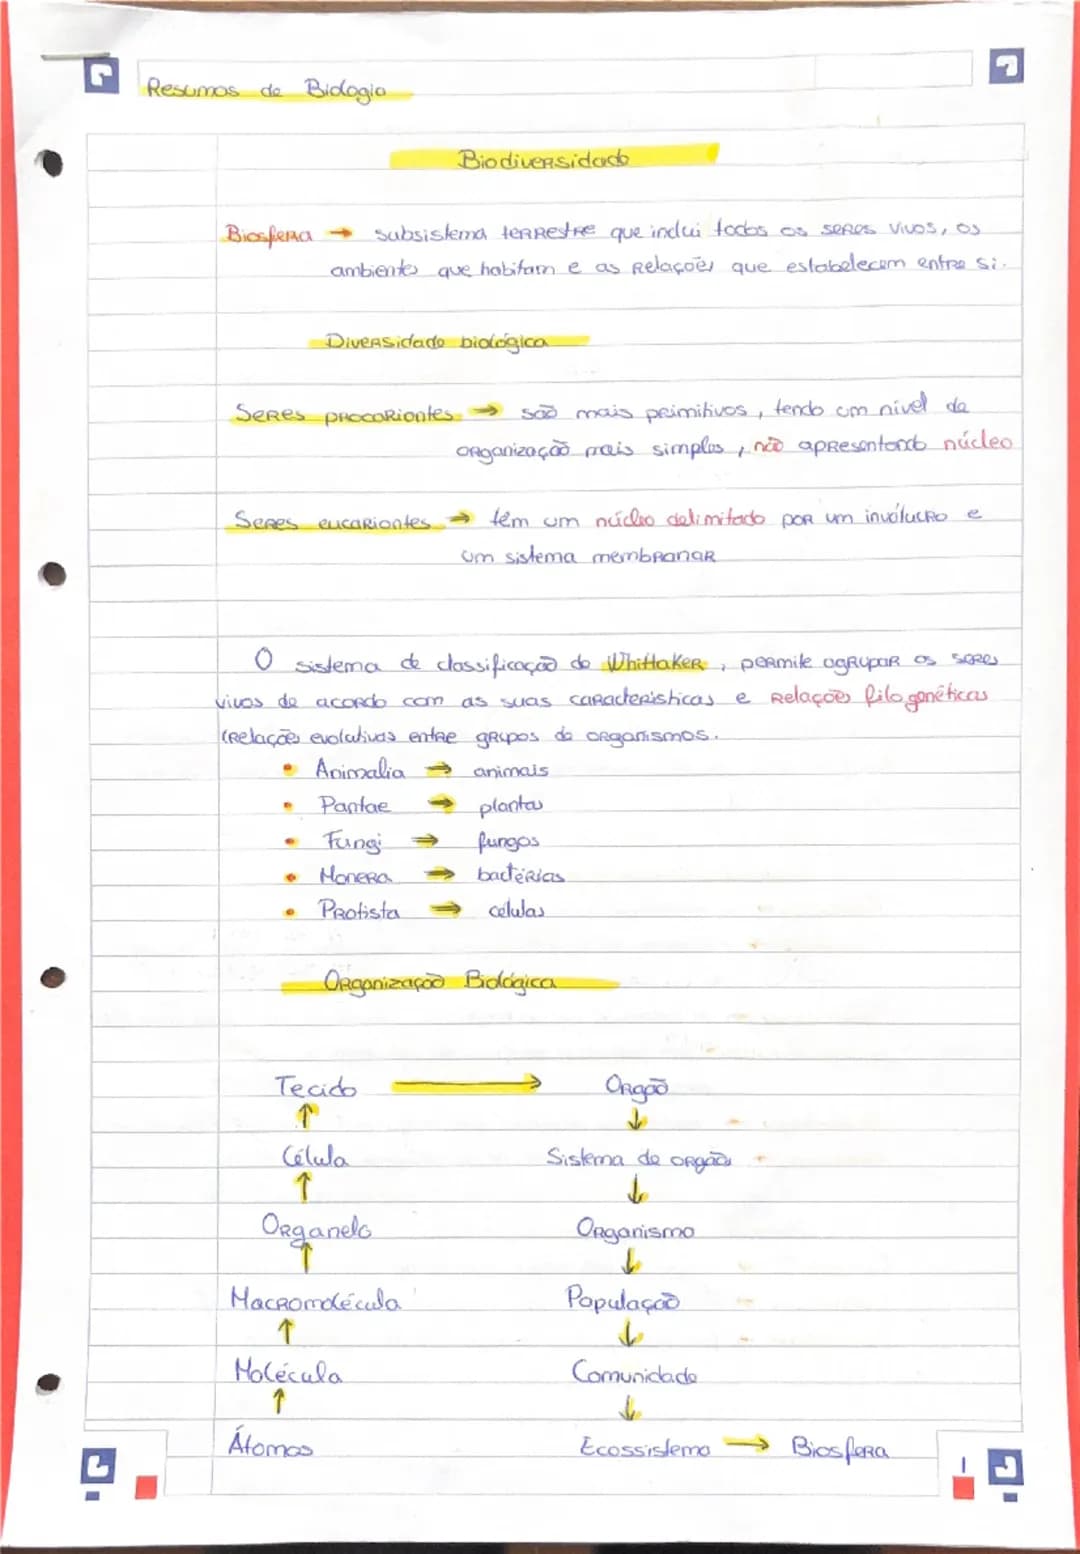 Resumos de Biologia
Biodiversidade
Biosfera → subsistema terrestre que inclui todos os seres vivos, os
ambientes que habitam e as relações que estabelecem entre si.
Diversidade biológica
Seres procariontes → são mais primitivos, tendo um nível de
organização mais simples, não apresentando núcleo
Seres eucariontes → têm um núcleo delimitado por um invólucro e
um sistema membranar
O sistema de classificação de Whittaker, permite agrupar os seres
vivos de acordo com as suas características e relações filogenéticas
(relações evolutivas entre grupos de organismos.
• Animalia → animais
• Pantae → plantas
• Fungi → fungos
• Monera → bactérias
• Protista → células
Organização Biológica
Tecido → Orgão
↑ ↓
Célula Sistema de orgãos
↑ ↓
Organelo Organismo
↑ ↓
Macromolécula População
↑ ↓
Molécula Comunidade
↑ ↓
Átomos Ecossistema → Biosfera
1